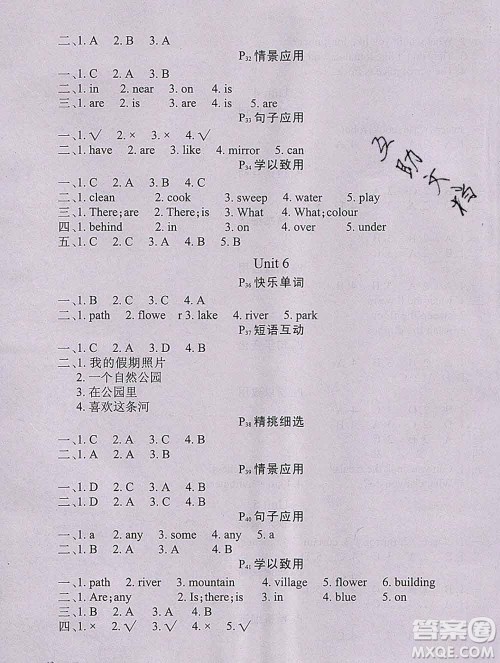 二、1. A 2. B 3. A
P32 情景应用
一、1. C 2. A 3. B 4. C
二、1. in 2. near 3. on 4. is
三、1. are 2. is 3. is 4. is 5. are
P33 句子应用
一、1. √ 2. × 3. × 4. √ 5. √
二、1. have 2. are 3. like 4. mirror 5. can
P34 学以致用
一、1. C 2. B 3. C 4. A 5. C
二、1. clean 2. cook 3. sweep 4. water 5. play
三、1. There; are 2. There; is 3. What 4. What; colour
四、1. behind 2. in 3. on 4. over 5. under
五、1. C 2. A 3. C 4. B
Unit 6
P36 快乐单词
一、1. B 2. C 3. A 4. B
二、1. path 2. flowe r 3. lake 4. river 5. park
P37 短语互动
一、1. C 2. A 3. D 4. B
二、1. 我的假期照片
2. 一个自然公园
3. 在公园里
4. 喜欢这条河
P38 精挑细选
一、1. C 2. A 3. C 4. B
二、1. A 2. B 3. A 4. B
P39 情景应用
一、1. D 2. C 3. A 4. B
二、1. D 2. A 3. C 4. B
P40 句子应用
一、1. a 2. any 3. some 4. any 5. a
二、1. C 2. D 3. A 4. B
P41 学以致用
一、1. path 2. river 3. mountain 4. village 5. flower 6. building
二、1. Are; any 2. Is; there; is 3. in
三、1. C 2. A 3. B 4. B
四、1. × 2. √ 3. √ 4. √
互助文档
答案圈
MXQE.COM